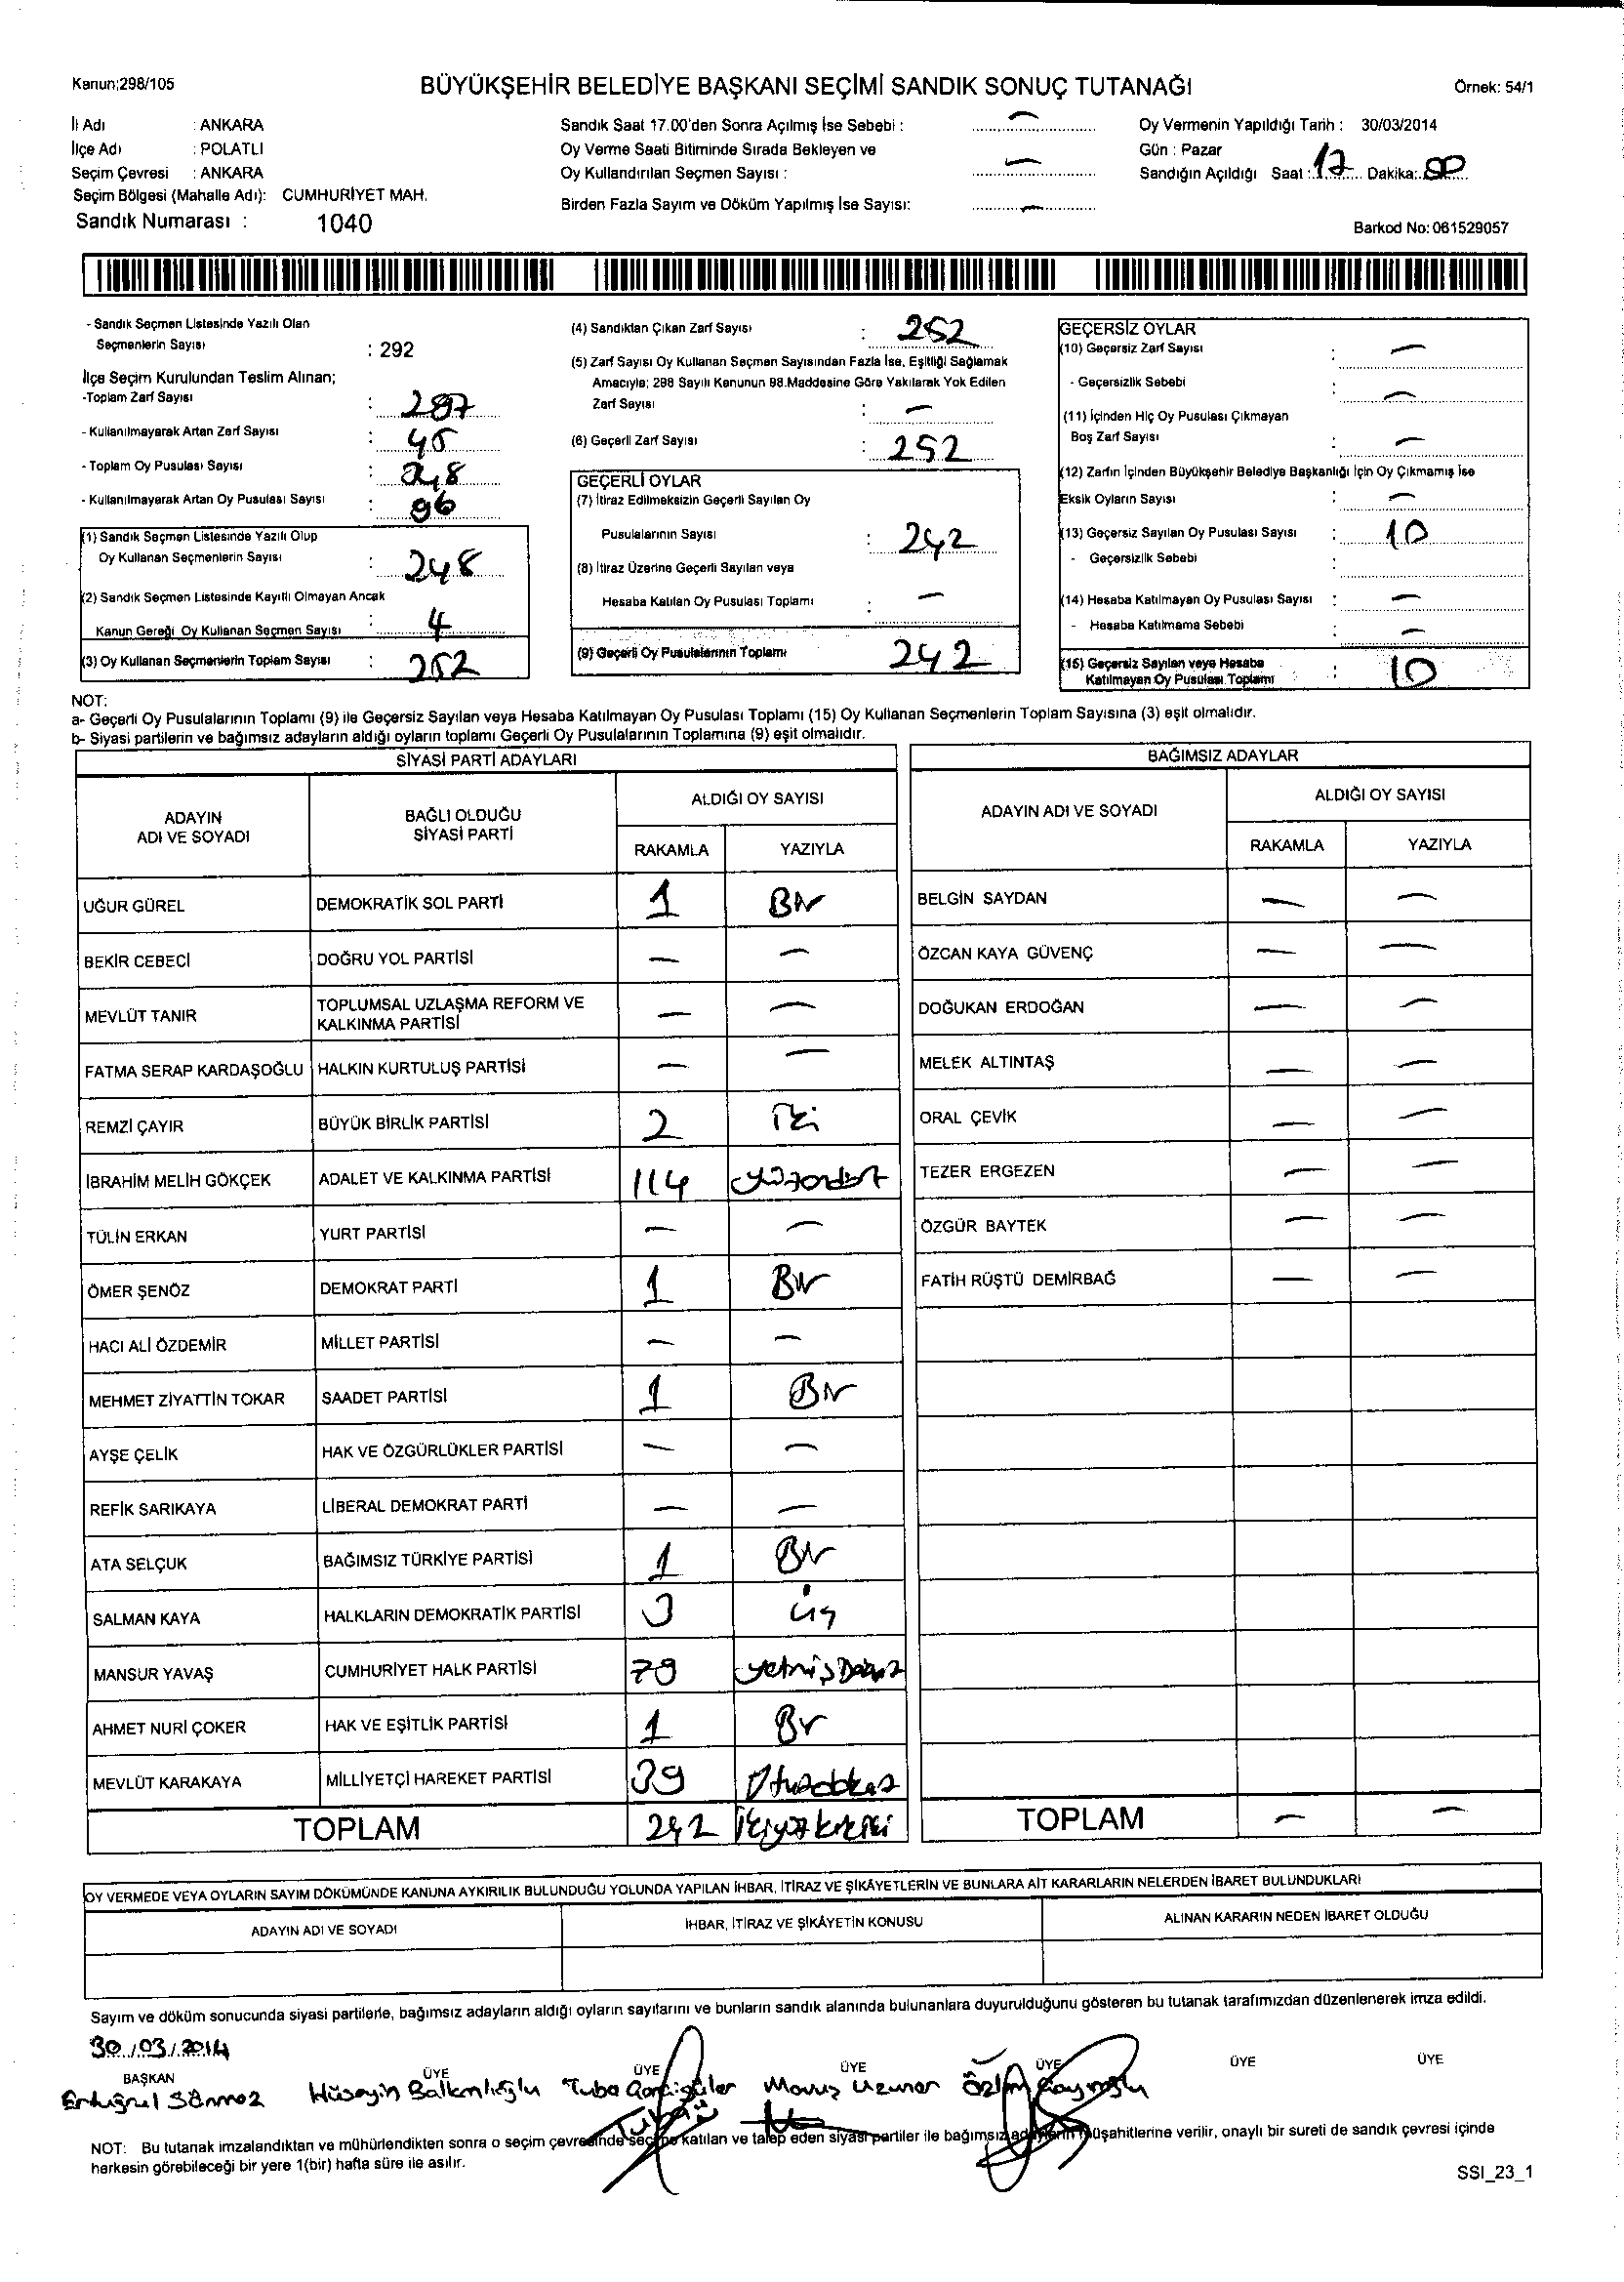 Kanun:298/105
BÜYÜKŞEHİR BELEDİYE BAŞKANI SEÇİMİ SANDIK SONUÇ TUTANAĞI
Örnek: 54/1
İl Adı : ANKARA
İlçe Adı : POLATLI
Seçim Çevresi : ANKARA
Seçim Bölgesi (Mahalle Adı): CUMHURİYET MAH.
Sandık Numarası : 1040
Sandık Saat 17.00'den Sonra Açılmış İse Sebebi : —
Oy Verme Saati Bitiminde Sırada Bekleyen ve
Oy Kullandırılan Seçmen Sayısı : —
Birden Fazla Sayım ve Döküm Yapılmış İse Sayısı: —
Oy Vermenin Yapıldığı Tarih : 30/03/2014
Gün : Pazar
Sandığın Açıldığı Saat : 17 Dakika: 00
Barkod No: 061529057
- Sandık Seçmen Listesinde Yazılı Olan
Seçmenlerin Sayısı : 292
İlçe Seçim Kurulundan Teslim Alınan;
-Toplam Zarf Sayısı : 297
- Kullanılmayarak Artan Zarf Sayısı : 45
- Toplam Oy Pusulası Sayısı :
- Kullanılmayarak Artan Oy Pusulası Sayısı : 96
(1) Sandık Seçmen Listesinde Yazılı Olup
Oy Kullanan Seçmenlerin Sayısı : 248
(2) Sandık Seçmen Listesinde Kayıtlı Olmayan Ancak
Kanun Gereği Oy Kullanan Seçmen Sayısı : 4
(3) Oy Kullanan Seçmenlerin Toplam Sayısı : 252
(4) Sandıktan Çıkan Zarf Sayısı : 252
(5) Zarf Sayısı Oy Kullanan Seçmen Sayısından Fazla İse, Eşitliği Sağlamak
Amacıyla; 298 Sayılı Kanunun 98.Maddesine Göre Yakılarak Yok Edilen
Zarf Sayısı : —
(6) Geçerli Zarf Sayısı : 252
GEÇERLİ OYLAR
(7) İtiraz Edilmeksizin Geçerli Sayılan Oy
Pusulalarının Sayısı : 242
(8) İtiraz Üzerine Geçerli Sayılan veya
Hesaba Katılan Oy Pusulası Toplamı : —
(9) Geçerli Oy Pusulalarının Toplamı 242
GEÇERSİZ OYLAR
(10) Geçersiz Zarf Sayısı : —
- Geçersizlik Sebebi : —
(11) İçinden Hiç Oy Pusulası Çıkmayan
Boş Zarf Sayısı : —
(12) Zarfın İçinden Büyükşehir Belediye Başkanlığı İçin Oy Çıkmamış İse
Eksik Oyların Sayısı : —
(13) Geçersiz Sayılan Oy Pusulası Sayısı : 10
- Geçersizlik Sebebi :
(14) Hesaba Katılmayan Oy Pusulası Sayısı : —
- Hesaba Katılmama Sebebi : —
(15) Geçersiz Sayılan veya Hesaba
Katılmayan Oy Pusulası Toplamı : 10
NOT:
a- Geçerli Oy Pusulalarının Toplamı (9) ile Geçersiz Sayılan veya Hesaba Katılmayan Oy Pusulası Toplamı (15) Oy Kullanan Seçmenlerin Toplam Sayısına (3) eşit olmalıdır.
b- Siyasi partilerin ve bağımsız adayların aldığı oyların toplamı Geçerli Oy Pusulalarının Toplamına (9) eşit olmalıdır.
SİYASİ PARTİ ADAYLARI
ADAYIN ADI VE SOYADI BAĞLI OLDUĞU SİYASİ PARTİ ALDIĞI OY SAYISI
RAKAMLA YAZIYLA
UĞUR GÜREL DEMOKRATİK SOL PARTİ 1 Bir
BEKİR CEBECİ DOĞRU YOL PARTİSİ — —
MEVLÜT TANIR TOPLUMSAL UZLAŞMA REFORM VE KALKINMA PARTİSİ — —
FATMA SERAP KARDAŞOĞLU HALKIN KURTULUŞ PARTİSİ — —
REMZİ ÇAYIR BÜYÜK BİRLİK PARTİSİ 2 İki
İBRAHİM MELİH GÖKÇEK ADALET VE KALKINMA PARTİSİ 114 yüzondört
TÜLİN ERKAN YURT PARTİSİ — —
ÖMER ŞENÖZ DEMOKRAT PARTİ 1 Bir
HACI ALİ ÖZDEMİR MİLLET PARTİSİ — —
MEHMET ZİYATTİN TOKAR SAADET PARTİSİ 1 Bir
AYŞE ÇELİK HAK VE ÖZGÜRLÜKLER PARTİSİ — —
REFİK SARIKAYA LİBERAL DEMOKRAT PARTİ — —
ATA SELÇUK BAĞIMSIZ TÜRKİYE PARTİSİ 1 Bir
SALMAN KAYA HALKLARIN DEMOKRATİK PARTİSİ 3 üç
MANSUR YAVAŞ CUMHURİYET HALK PARTİSİ 79 yetmişDokuz
AHMET NURİ ÇOKER HAK VE EŞİTLİK PARTİSİ 1 Bir
MEVLÜT KARAKAYA MİLLİYETÇİ HAREKET PARTİSİ 39 Otuzdokuz
TOPLAM 242 İkiyüzkırkiki
BAĞIMSIZ ADAYLAR
ADAYIN ADI VE SOYADI ALDIĞI OY SAYISI
RAKAMLA YAZIYLA
BELGİN SAYDAN — —
ÖZCAN KAYA GÜVENÇ — —
DOĞUKAN ERDOĞAN — —
MELEK ALTINTAŞ — —
ORAL ÇEVİK — —
TEZER ERGEZEN — —
ÖZGÜR BAYTEK — —
FATİH RÜŞTÜ DEMİRBAĞ — —
TOPLAM — —
OY VERMEDE VEYA OYLARIN SAYIM DÖKÜMÜNDE KANUNA AYKIRILIK BULUNDUĞU YOLUNDA YAPILAN İHBAR, İTİRAZ VE ŞİKÂYETLERİN VE BUNLARA AİT KARARLARIN NELERDEN İBARET BULUNDUKLARI
ADAYIN ADI VE SOYADI İHBAR, İTİRAZ VE ŞİKÂYETİN KONUSU ALINAN KARARIN NEDEN İBARET OLDUĞU
Sayım ve döküm sonucunda siyasi partilerle, bağımsız adayların aldığı oyların sayılarını ve bunların sandık alanında bulunanlara duyurulduğunu gösteren bu tutanak tarafımızdan düzenlenerek imza edildi.
30/03/2014
BAŞKAN ÜYE ÜYE ÜYE ÜYE ÜYE ÜYE
Ertuğrul Sönmez Hüseyin Tuba Uzuner
NOT: Bu tutanak imzalandıktan ve mühürlendikten sonra o seçim çevresinde seçime katılan ve talep eden siyasi partiler ile bağımsız adayların müşahitlerine verilir, onaylı bir sureti de sandık çevresi içinde
herkesin görebileceği bir yere 1(bir) hafta süre ile asılır.
SSI_23_1